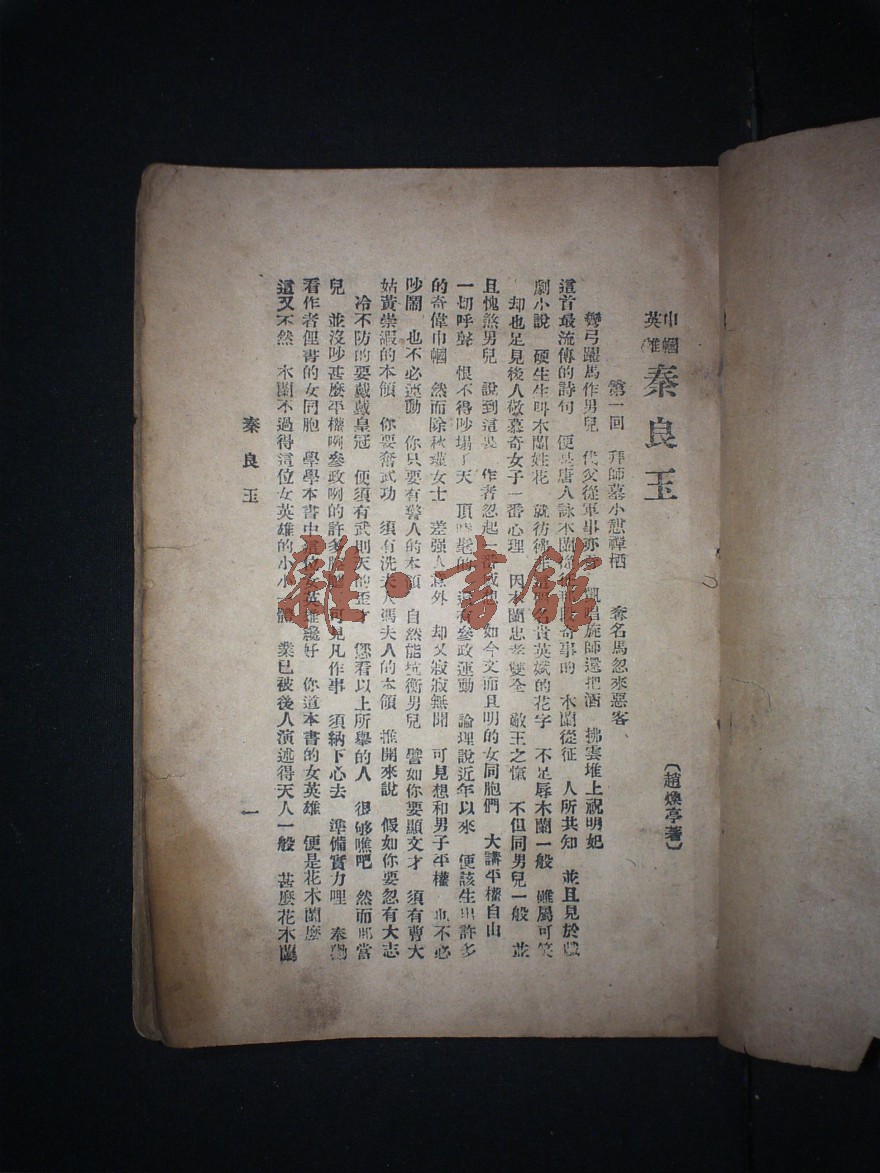 巾幗英雄 秦良玉
〔趙煥亭著〕
第一回 拜師墓小憩禪栖 奪名馬忽來惡客
彎弓躍馬作男兒 代父從軍事亦 凱唱旋師還把酒 拂雲堆上祝明妃
這首最流傳的詩句 便是唐人詠木蘭從征 奇事的 木蘭從征 人所共知 並且見於戲
劇小說 硬生生叫木蘭姓花 就彷彿 名貴英娬的花字 不足辱木蘭一般 雖屬可笑
却也足見後人敬慕奇女子一番心理 因木蘭忠孝雙全 敵王之愾 不但同男兒一般 並
且愧煞男兒 說到這裏 作者忽起一番感 如今文而且明的女同胞們 大講平權自由
一切呼聲 恨不得吵塌了天 頂時髦的 還有參政運動 論理說近年以來 便該生出許多
的奇偉巾幗 然而除秋瑾女士 差强人意外 却又寂寂無聞 可見想和男子平權 也不必
吵鬧 也不必運動 你只要有驚人的本領 自然能抗衡男兒 譬如你要顯文才 須有曹大
姑黃崇嘏的本領 你要奮武功 須有洗夫人馮夫人的本領 推開來說 假如你要忽有大志
冷不防的要戴戴皇冠 便須有武則天的歪才 您看以上所舉的人 很够瞧吧 然而那當
兒 並沒吵甚麼平權咧參政咧的許多 可見凡作事 須納下心去 準備實力哩 奉勸
看作者俚書的女同胞 學學本書中這位女英雄纔好 你道本書的女英雄 便是花木蘭麼
這又不然 木蘭不過得這位女英雄的小小一體 業已被後人演述得天人一般 甚麼花木蘭
秦良玉
一
雜·書館